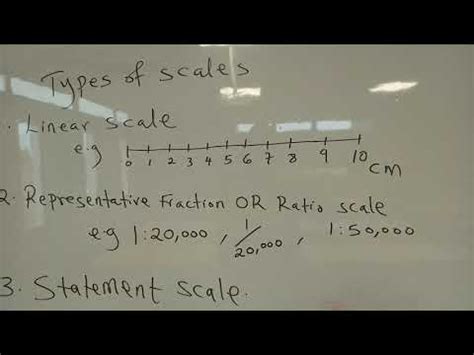 Types of scales
. Linear scale
e.g 0 1 2 3 4 5 6 7 8 9 10 cm
2. Representative Fraction OR Ratio scale
e.g 1:20,000 , 1/20,000 , 1:50,000
3. Statement scale.